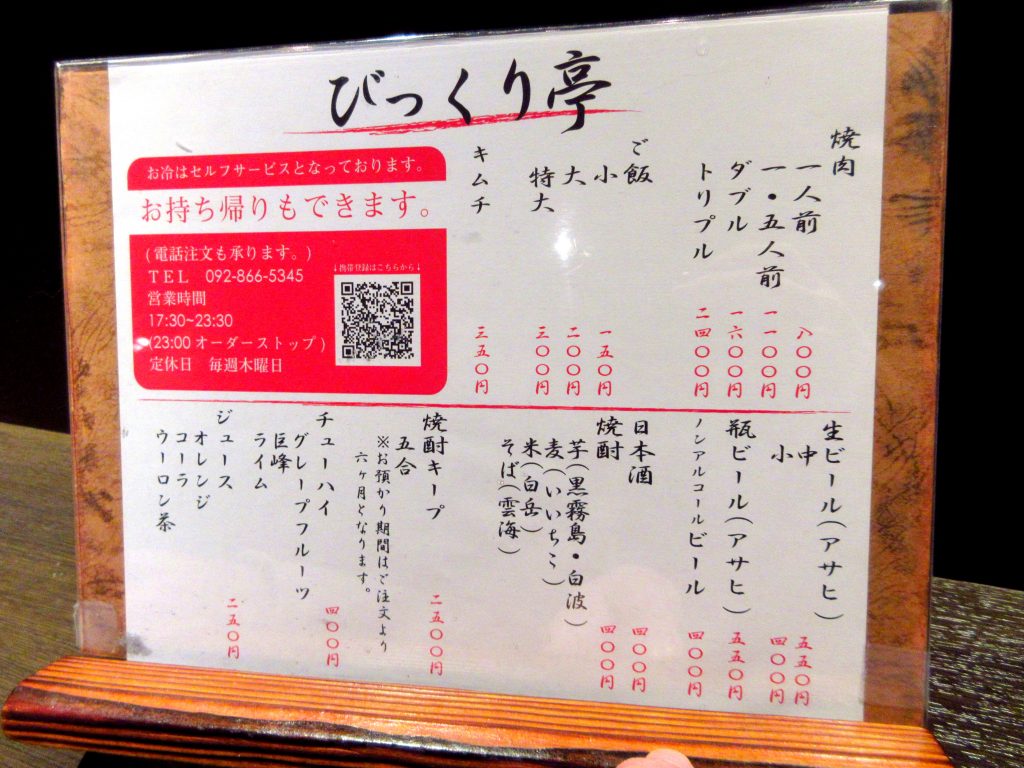 びっくり亭
焼肉
一人前 八〇〇円
一・五人前 一一〇〇円
ダブル 一六〇〇円
トリプル 二四〇〇円
ご飯
小 一五〇円
大 二〇〇円
特大 三〇〇円
キムチ 三五〇円
お冷はセルフサービスとなっております。
お持ち帰りもできます。
(電話注文も承ります。)
TEL 092-866-5345
営業時間
17:30~23:30
(23:00 オーダーストップ)
定休日 毎週木曜日
↓携帯登録はこちらから↓
生ビール(アサヒ)
中 五五〇円
小 四〇〇円
瓶ビール(アサヒ) 五五〇円
ノンアルコールビール 四〇〇円
日本酒 四〇〇円
焼酎 四〇〇円
芋(黒霧島・白波)
麦(いいちこ)
米(白岳)
そば(雲海)
焼酎キープ 二五〇〇円
五合
※お預かり期間はご注文より
六ヶ月となります。
チューハイ 四〇〇円
グレープフルーツ
巨峰
ライム
ジュース 二五〇円
オレンジ
コーラ
ウーロン茶